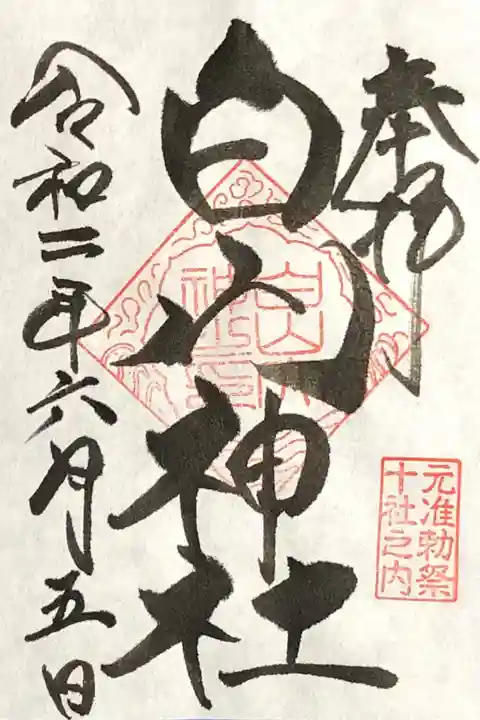 奉拝
白山神社
令和二年六月五日
白山
神社
元准勅祭
十社之内